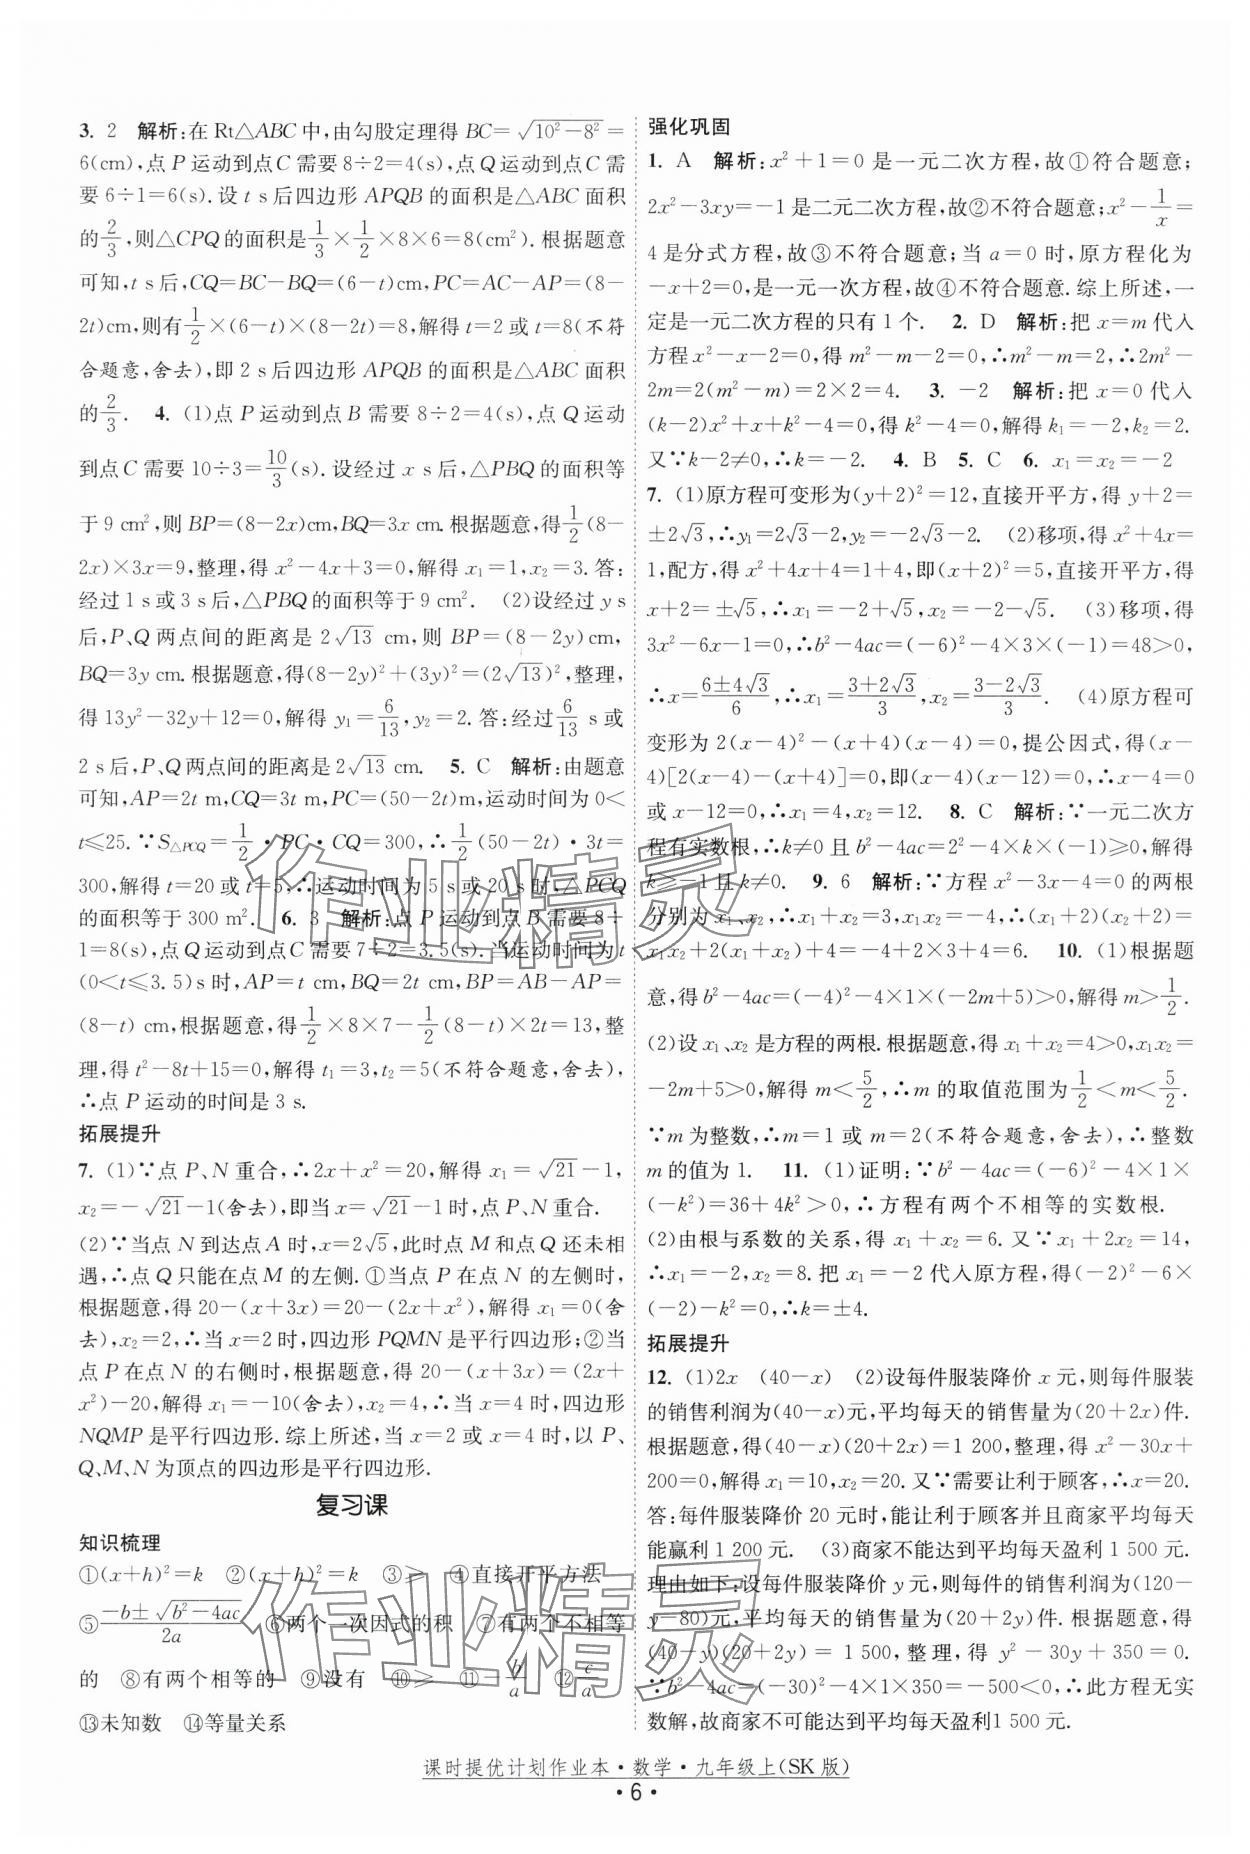 3. 2 解析:在 Rt△ABC 中,由勾股定理得 BC=√(10²-8²)=
6(cm),点 P 运动到点 C 需要 8÷2=4(s),点 Q 运动到点 C 需
要 6÷1=6(s).设 t s 后四边形 APQB 的面积是△ABC 面积
的2/3,则△CPQ 的面积是1/3×1/2×8×6=8(cm²).根据题意
可知,t s 后,CQ=BC-BQ=(6-t)cm,PC=AC-AP=(8-
2t)cm,则有1/2×(6-t)×(8-2t)=8,解得 t=2 或 t=8(不符
合题意,舍去),即 2 s 后四边形 APQB 的面积是△ABC 面积
的2/3. 4. (1)点 P 运动到点 B 需要 8÷2=4(s),点 Q 运动
到点 C 需要 10÷3=10/3(s).设经过 x s 后,△PBQ 的面积等
于 9 cm²,则 BP=(8-2x)cm,BQ=3x cm.根据题意,得1/2(8-
2x)×3x=9,整理,得 x²-4x+3=0,解得 x₁=1,x₂=3.答:
经过 1 s 或 3 s 后,△PBQ 的面积等于 9 cm². (2)设经过 y s
后,P、Q 两点间的距离是 2√13 cm,则 BP=(8-2y)cm,
BQ=3y cm.根据题意,得(8-2y)²+(3y)²=(2√13)²,整理,
得 13y²-32y+12=0,解得 y₁=6/13,y₂=2.答:经过6/13 s 或
2 s 后,P、Q 两点间的距离是 2√13 cm. 5. C 解析:由题意
可知,AP=2t m,CQ=3t m,PC=(50-2t)m,运动时间为 0<
t≤25.∵S△PCQ=1/2·PC·CQ=300,∴1/2(50-2t)·3t=
300,解得 t=20 或 t=5,∴运动时间为 5 s 或 20 s 时,△PCQ
的面积等于 300 m². 6. 3 解析:点 P 运动到点 B 需要 8÷
1=8(s),点 Q 运动到点 C 需要 7÷2=3.5(s).当运动时间为 t
(0<t≤3.5)s 时,AP=t cm,BQ=2t cm,BP=AB-AP=
(8-t) cm,根据题意,得1/2×8×7-1/2(8-t)×2t=13,整
理,得 t²-8t+15=0,解得 t₁=3,t₂=5(不符合题意,舍去),
∴点 P 运动的时间是 3 s.
拓展提升
7. (1)∵点 P、N 重合,∴2x+x²=20,解得 x₁=√21-1,
x₂=-√21-1(舍去),即当 x=√21-1 时,点 P、N 重合.
(2)∵当点 N 到达点 A 时,x=2√5,此时点 M 和点 Q 还未相
遇,∴点 Q 只能在点 M 的左侧.①当点 P 在点 N 的左侧时,
根据题意,得 20-(x+3x)=20-(2x+x²),解得 x₁=0(舍
去),x₂=2,∴当 x=2 时,四边形 PQMN 是平行四边形;②当
点 P 在点 N 的右侧时,根据题意,得 20-(x+3x)=(2x+
x²)-20,解得 x₁=-10(舍去),x₂=4,∴当 x=4 时,四边形
NQMP 是平行四边形.综上所述,当 x=2 或 x=4 时,以 P、
Q、M、N 为顶点的四边形是平行四边形.
复习课
知识梳理
①(x+h)²=k ②(x+h)²=k ③≥ ④直接开平方法
⑤(-b±√(b²-4ac))/2a ⑥两个一次因式的积 ⑦有两个不相等
的 ⑧有两个相等的 ⑨没有 ⑩≥ ⑪-b/a ⑫c/a
⑬未知数 ⑭等量关系
强化巩固
1. A 解析:x²+1=0 是一元二次方程,故①符合题意;
2x²-3xy=-1 是二元二次方程,故②不符合题意;x²-1/x=
4 是分式方程,故③不符合题意;当 a=0 时,原方程化为
-x+2=0,是一元一次方程,故④不符合题意.综上所述,一
定是一元二次方程的只有 1 个. 2. D 解析:把 x=m 代入
方程 x²-x-2=0,得 m²-m-2=0,∴m²-m=2,∴2m²-
2m=2(m²-m)=2×2=4. 3. -2 解析:把 x=0 代入
(k-2)x²+x+k²-4=0,得 k²-4=0,解得 k₁=-2,k₂=2.
又∵k-2≠0,∴k=-2. 4. B 5. C 6. x₁=x₂=-2
7. (1)原方程可变形为(y+2)²=12,直接开平方,得 y+2=
±2√3,∴y₁=2√3-2,y₂=-2√3-2. (2)移项,得 x²+4x=
1,配方,得 x²+4x+4=1+4,即(x+2)²=5,直接开平方,得
x+2=±√5,∴x₁=-2+√5,x₂=-2-√5. (3)移项,得
3x²-6x-1=0,∴b²-4ac=(-6)²-4×3×(-1)=48>0,
∴x=(6±4√3)/6,∴x₁=(3+2√3)/3,x₂=(3-2√3)/3. (4)原方程可
变形为 2(x-4)²-(x+4)(x-4)=0,提公因式,得(x-
4)[2(x-4)-(x+4)]=0,即(x-4)(x-12)=0,∴x-4=0
或 x-12=0,∴x₁=4,x₂=12. 8. C 解析:∵一元二次方
程有实数根,∴k≠0 且 b²-4ac=2²-4×k×(-1)≥0,解得
k≥-1 且 k≠0. 9. 6 解析:∵方程 x²-3x-4=0 的两根
分别为 x₁、x₂,∴x₁+x₂=3,x₁x₂=-4,∴(x₁+2)(x₂+2)=
x₁x₂+2(x₁+x₂)+4=-4+2×3+4=6. 10. (1)根据题
意,得 b²-4ac=(-4)²-4×1×(-2m+5)>0,解得 m>1/2.
(2)设 x₁、x₂ 是方程的两根.根据题意,得 x₁+x₂=4>0,x₁x₂=
-2m+5>0,解得 m<5/2,∴m 的取值范围为1/2<m<5/2.
∵m 为整数,∴m=1 或 m=2(不符合题意,舍去),∴整数
m 的值为 1. 11. (1)证明:∵b²-4ac=(-6)²-4×1×
(-k²)=36+4k²>0,∴方程有两个不相等的实数根.
(2)由根与系数的关系,得 x₁+x₂=6.又∵x₁+2x₂=14,
∴x₁=-2,x₂=8.把 x₁=-2 代入原方程,得(-2)²-6×
(-2)-k²=0,∴k=±4.
拓展提升
12. (1)2x (40-x) (2)设每件服装降价 x 元,则每件服装
的销售利润为(40-x)元,平均每天的销售量为(20+2x)件.
根据题意,得(40-x)(20+2x)=1 200,整理,得 x²-30x+
200=0,解得 x₁=10,x₂=20.又∵需要让利于顾客,∴x=20.
答:每件服装降价 20 元时,能让利于顾客并且商家平均每天
能赢利 1 200 元. (3)商家不能达到平均每天盈利 1 500 元.
理由如下:设每件服装降价 y 元,则每件的销售利润为(120-
y-80)元,平均每天的销售量为(20+2y)件.根据题意,得
(40-y)(20+2y)=1 500,整理,得 y²-30y+350=0.
∵b²-4ac=(-30)²-4×1×350=-500<0,∴此方程无实
数解,故商家不可能达到平均每天盈利1 500 元.
作业精灵
作业精灵
课时提优计划作业本·数学·九年级上(SK 版)
·6·